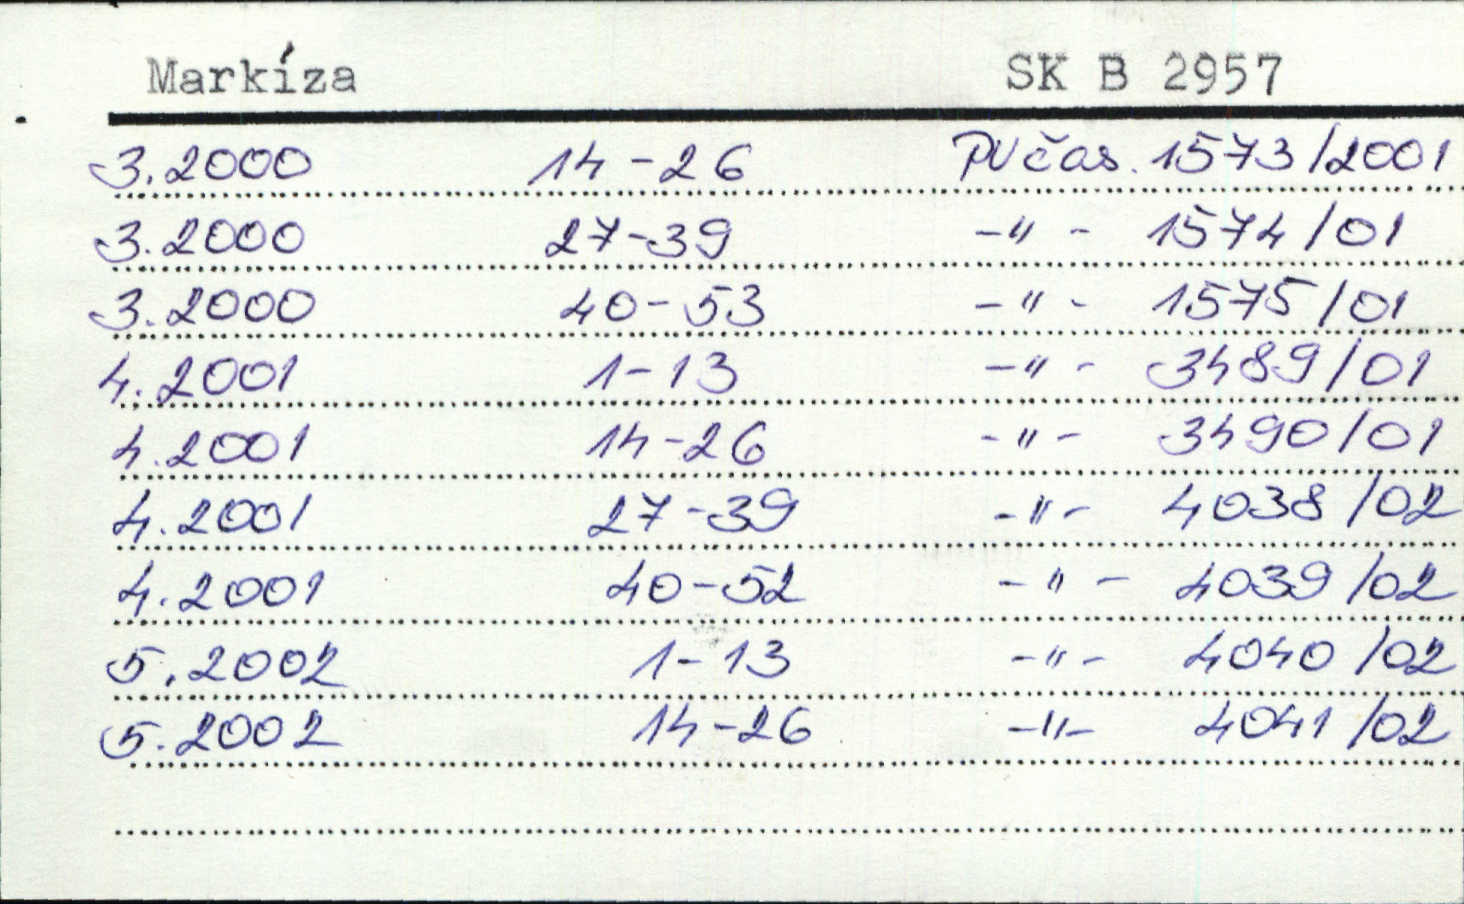 Markíza SK B 2957
3.2000 14-26 PV čas. 1573/2001
3.2000 27-39 -"- 1574/01
3.2000 40-53 -"- 1575/01
4.2001 1-13 -"- 3489/01
4.2001 14-26 -"- 3490/01
4.2001 27-39 -"- 4038/02
4.2001 40-52 -"- 4039/02
5.2002 1-13 -"- 4040/02
5.2002 14-26 -"- 4041/02